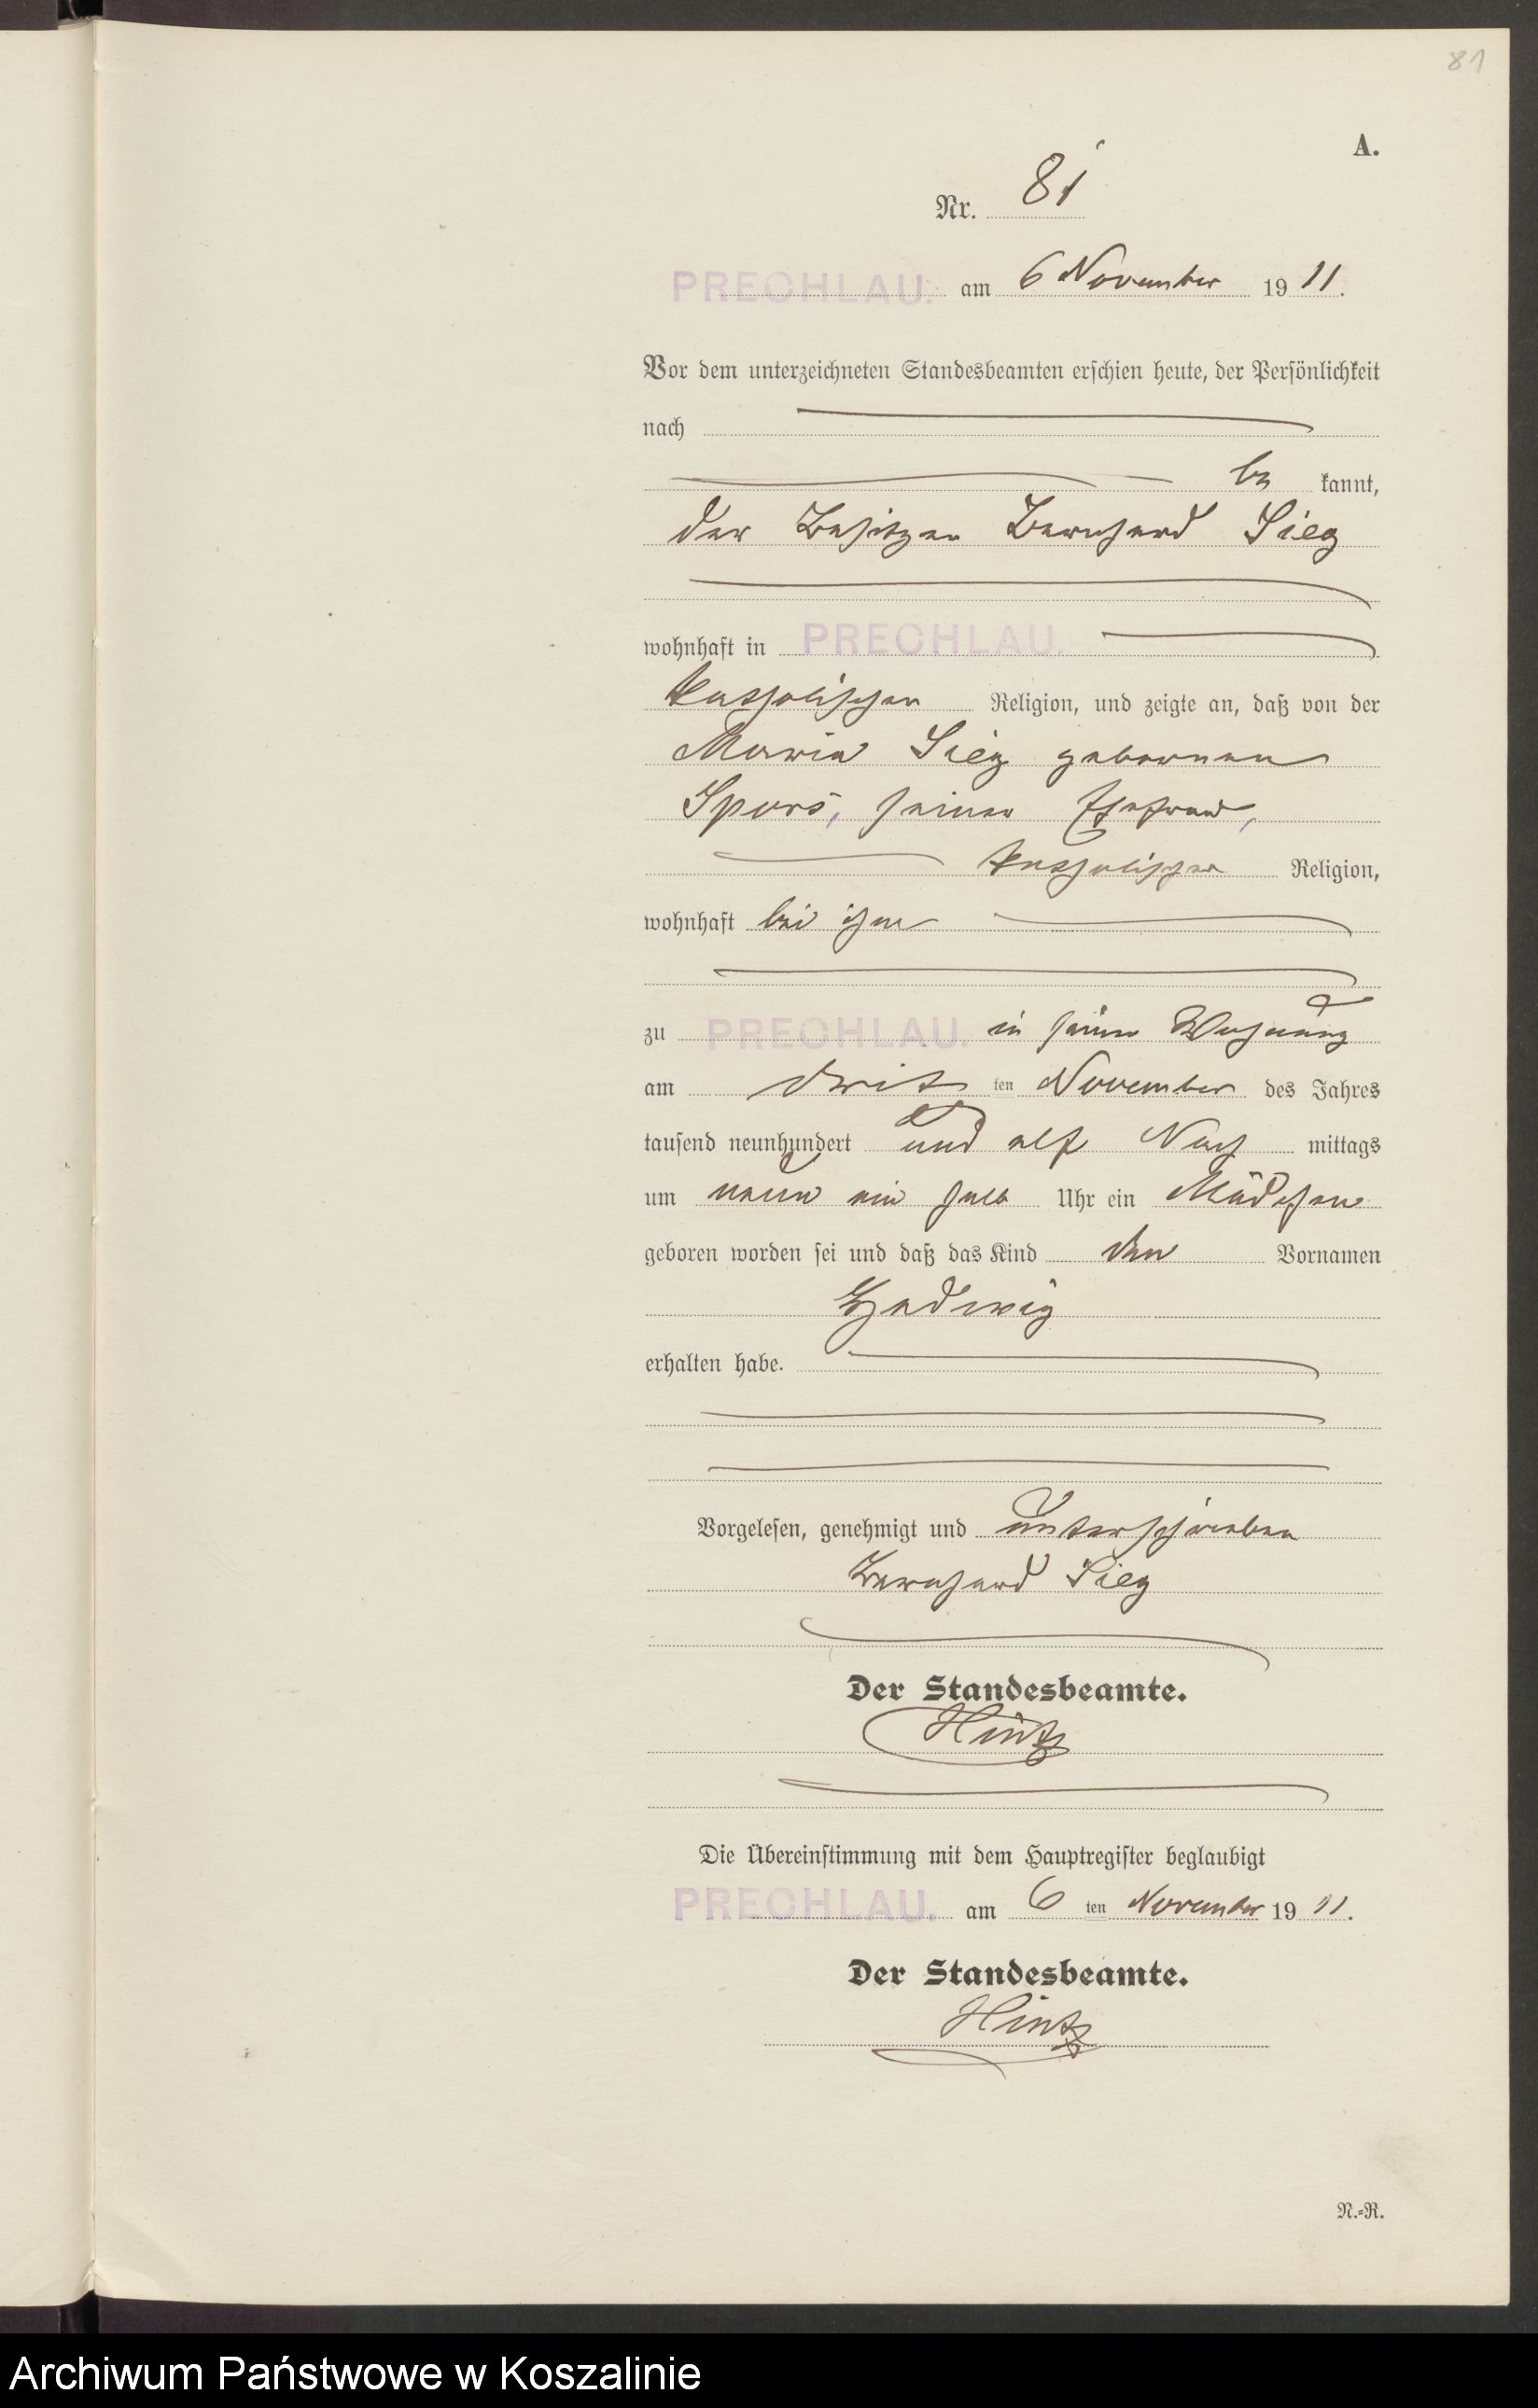 81
A.
Nr. 81
PRECHLAU. am 6 November 1911.
Vor dem unterzeichneten Standesbeamten erschien heute, der Persönlichkeit
nach
be kannt,
der Besitzer Bernhard Sieg
wohnhaft in PRECHLAU.
katholischer Religion, und zeigte an, daß von der
Maria Sieg geborenen
Spors, seiner Ehefrau,
katholischer Religion,
wohnhaft bei ihm
zu PRECHLAU. in seiner Wohnung
am dritten November des Jahres
tausend neunhundert und elf Nach mittags
um neun ein halb Uhr ein Mädchen
geboren worden sei und daß das Kind den Vornamen
Hedwig
erhalten habe.
Vorgelesen, genehmigt und unterschrieben
Bernhard Sieg
Der Standesbeamte.
Hintz
Die Übereinstimmung mit dem Hauptregister beglaubigt
PRECHLAU. am 6 ten November 1911.
Der Standesbeamte.
Hintz
N.=R.
Archiwum Państwowe w Koszalinie